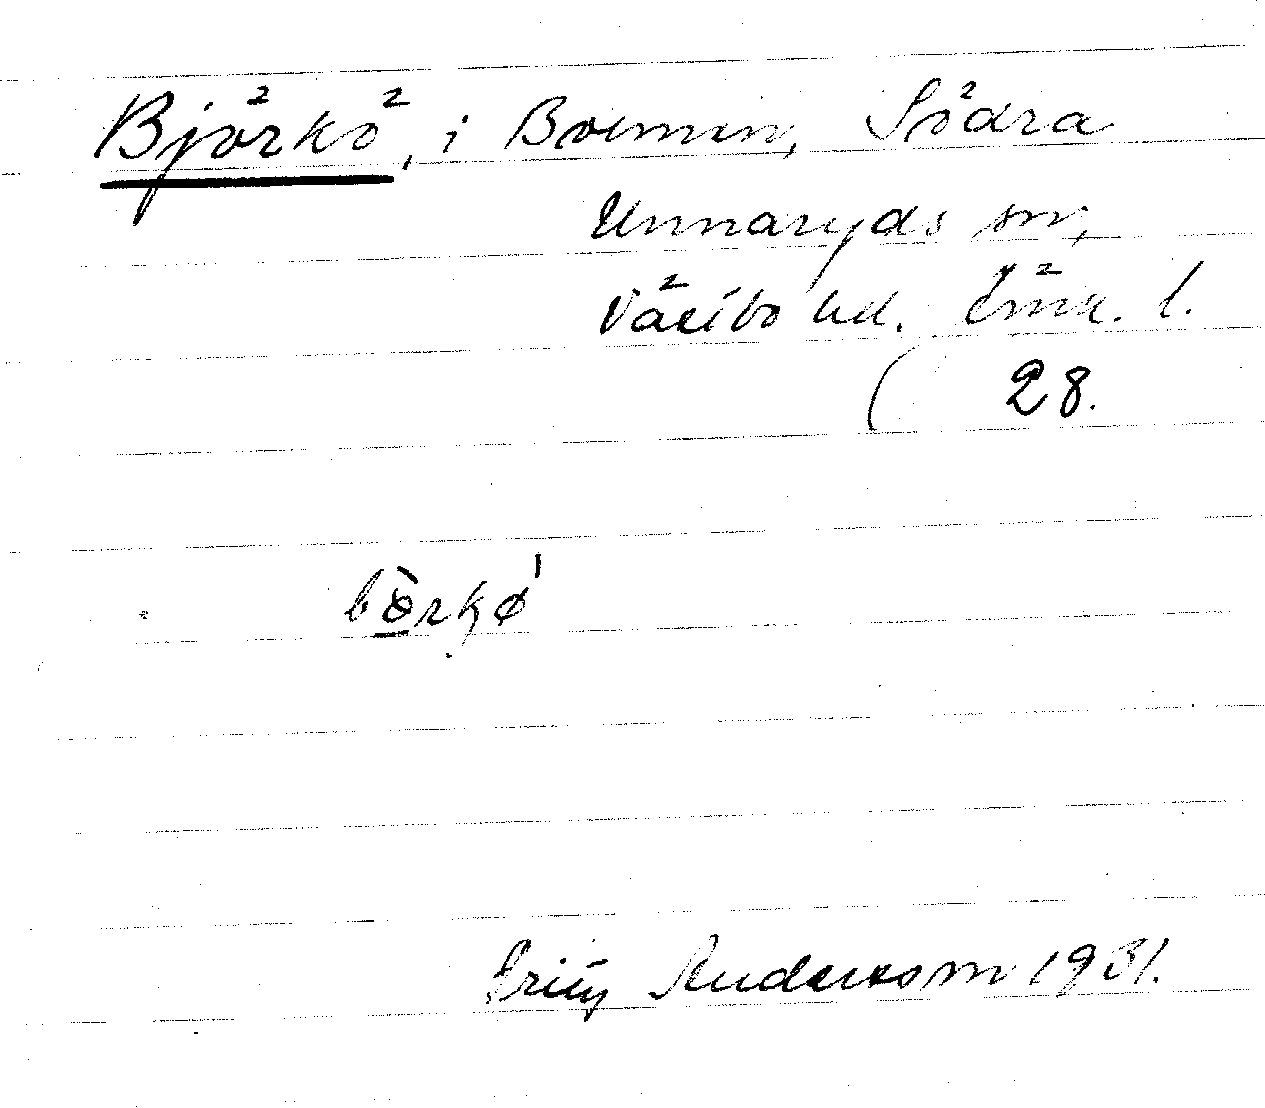 Björkö, i Bolmen, Södra
Unnaryds sn,
Västbo hd. Jönk. l.
28.
Fritz Andersson 1931.